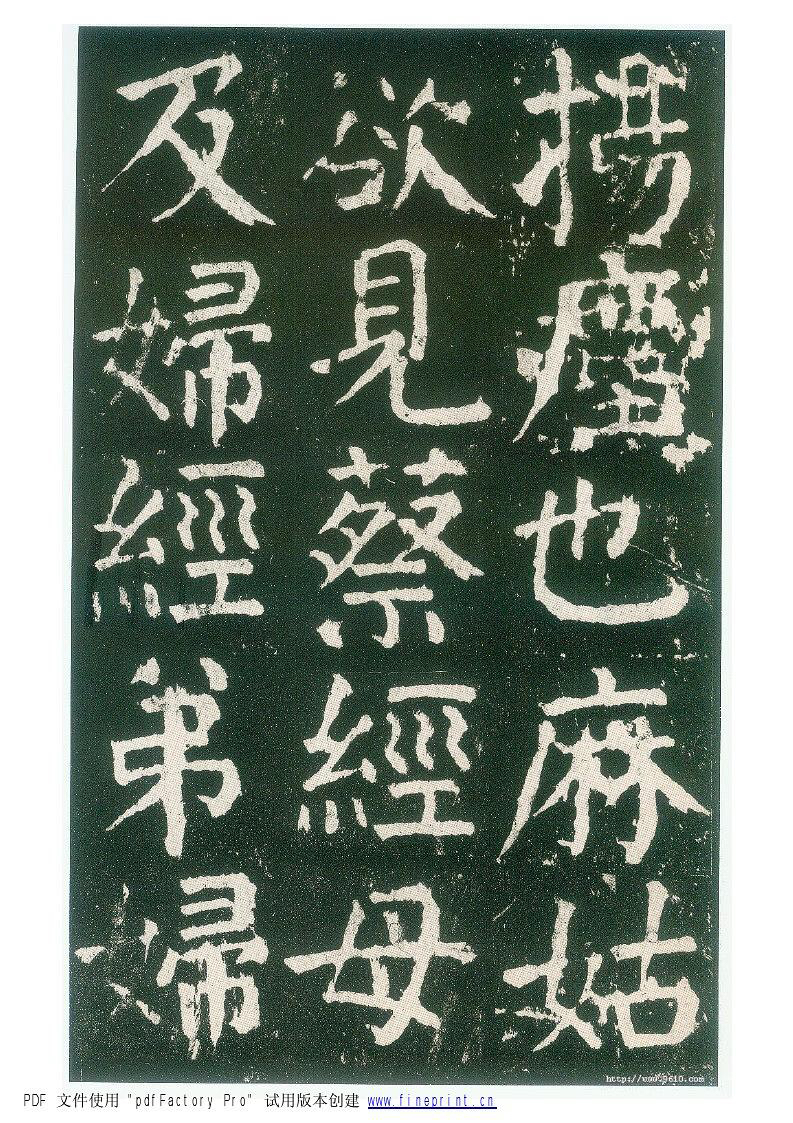 揚塵也麻姑
欲見蔡經母
及婦經弟婦
http://www.9610.com
PDF 文件使用 "pdfFactory Pro" 试用版本创建 www.fineprint.cn